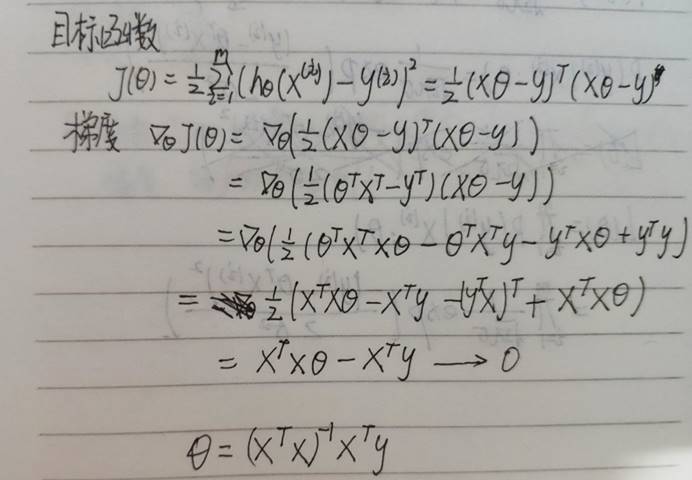 目标函数
J(θ) = 1/2 Σ_{i=1}^{m} (hθ(x^{(i)}) - y^{(i)})² = 1/2 (Xθ - y)^T (Xθ - y)
梯度 ∇θJ(θ) = ∇θ(1/2 (Xθ - y)^T (Xθ - y))
= ∇θ(1/2 (θ^T X^T - y^T)(Xθ - y))
= ∇θ(1/2 (θ^T X^T Xθ - θ^T X^T y - y^T Xθ + y^T y)
= 1/2 (X^T Xθ - X^T y - (y^T X)^T + X^T Xθ)
= X^T Xθ - X^T y → 0
θ = (X^T X)^{-1} X^T y